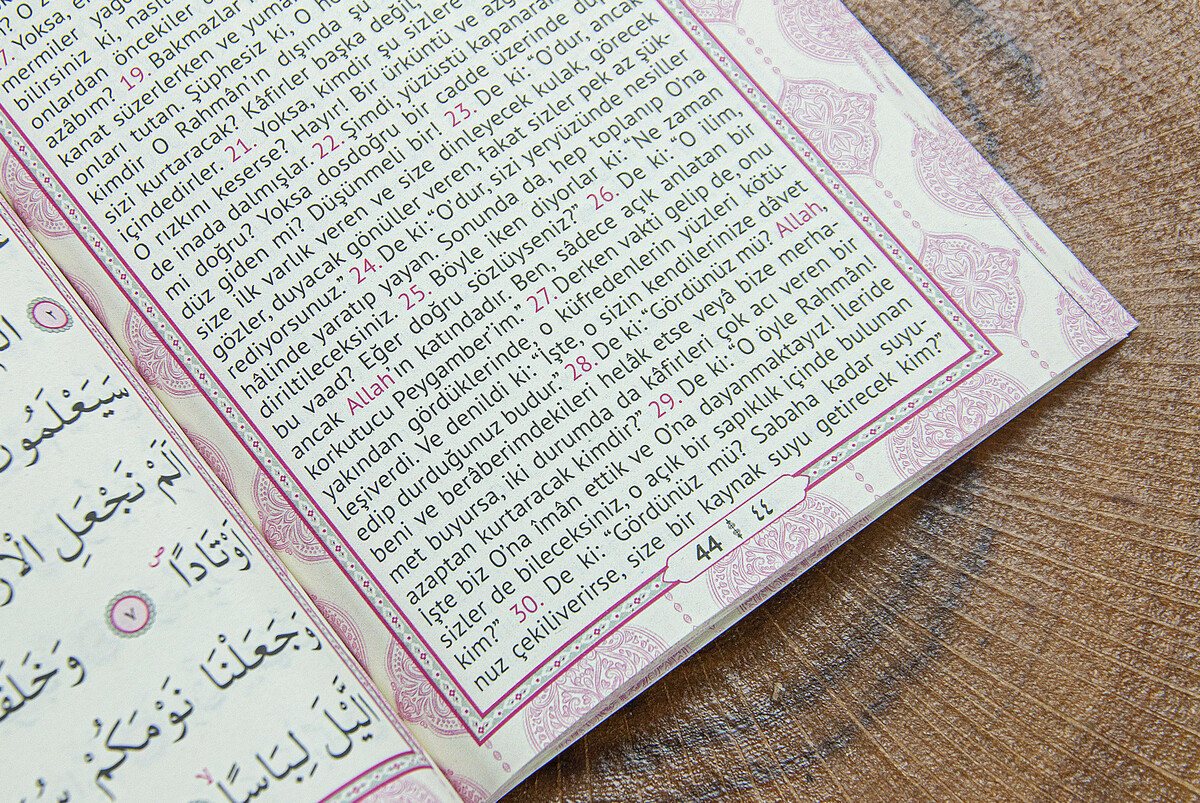 Yoksa,
mermiler
bilirsiniz ki,
onlardan öncekiler
azâbım? 19. Bakmazlar
kanat süzerlerken ve
onları tutan. Şüphesiz ki, O
kimdir O Rahmân'ın dışında şu
sizi kurtaracak? Kâfirler başka değil,
içindedirler. 21. Yoksa, kimdir, şu sizlere
O rızkını keserse? Hayır! Bir ürküntü ve
de inada dalmışlar. 22. Şimdi, yüzüstü kapanarak
mi doğru? Yoksa dosdoğru bir cadde üzerinde
düz giden mi? Düşünmeli bir! 23. De ki: “O'dur, ancak
size ilk varlık veren ve size dinleyecek kulak, görecek
gözler, duyacak gönüller veren, fakat sizler pek az şük-
rediyorsunuz.” 24. De ki: “O'dur, sizi yeryüzünde nesiller
hâlinde yaratıp yayan. Sonunda da, hep toplanıp O'na
diriltileceksiniz. 25. Böyle iken diyorlar ki: “Ne zaman
bu vaad? Eğer doğru sözlüyseniz?” 26. De ki: “O ilim,
ancak Allah'ın katındadır. Ben, sâdece açık anlatan bir
korkutucu Peygamber'im.” 27. Derken vakti gelip de, onu
yakından gördüklerinde, o küfredenlerin yüzleri kötü-
leşiverdi. Ve denildi ki: “İşte, o sizin kendilerinize dâvet
edip durduğunuz budur.” 28. De ki: “Gördünüz mü? Allah,
beni ve berâberimdekileri helâk etse veyâ bize merha-
met buyursa, iki durumda da kâfirleri çok acı veren bir
azaptan kurtaracak kimdir?” 29. De ki: “O öyle Rahmân!
İşte biz O'na îmân ettik ve O'na dayanmaktayız! İleride
sizler de bileceksiniz, o açık bir sapıklık içinde bulunan
kim?” 30. De ki: “Gördünüz mü? Sabaha kadar suyu-
nuz çekiliverirse, size bir kaynak suyu getirecek kim?”
44 ٤٤
٢
سَيَعْلَمُونَ
اَلَمْ نَجْعَلِ
اَوْتَادًا ٧
وَجَعَلْنَا نَوْمَكُمْ
الَّيْلَ لِبَاسًا